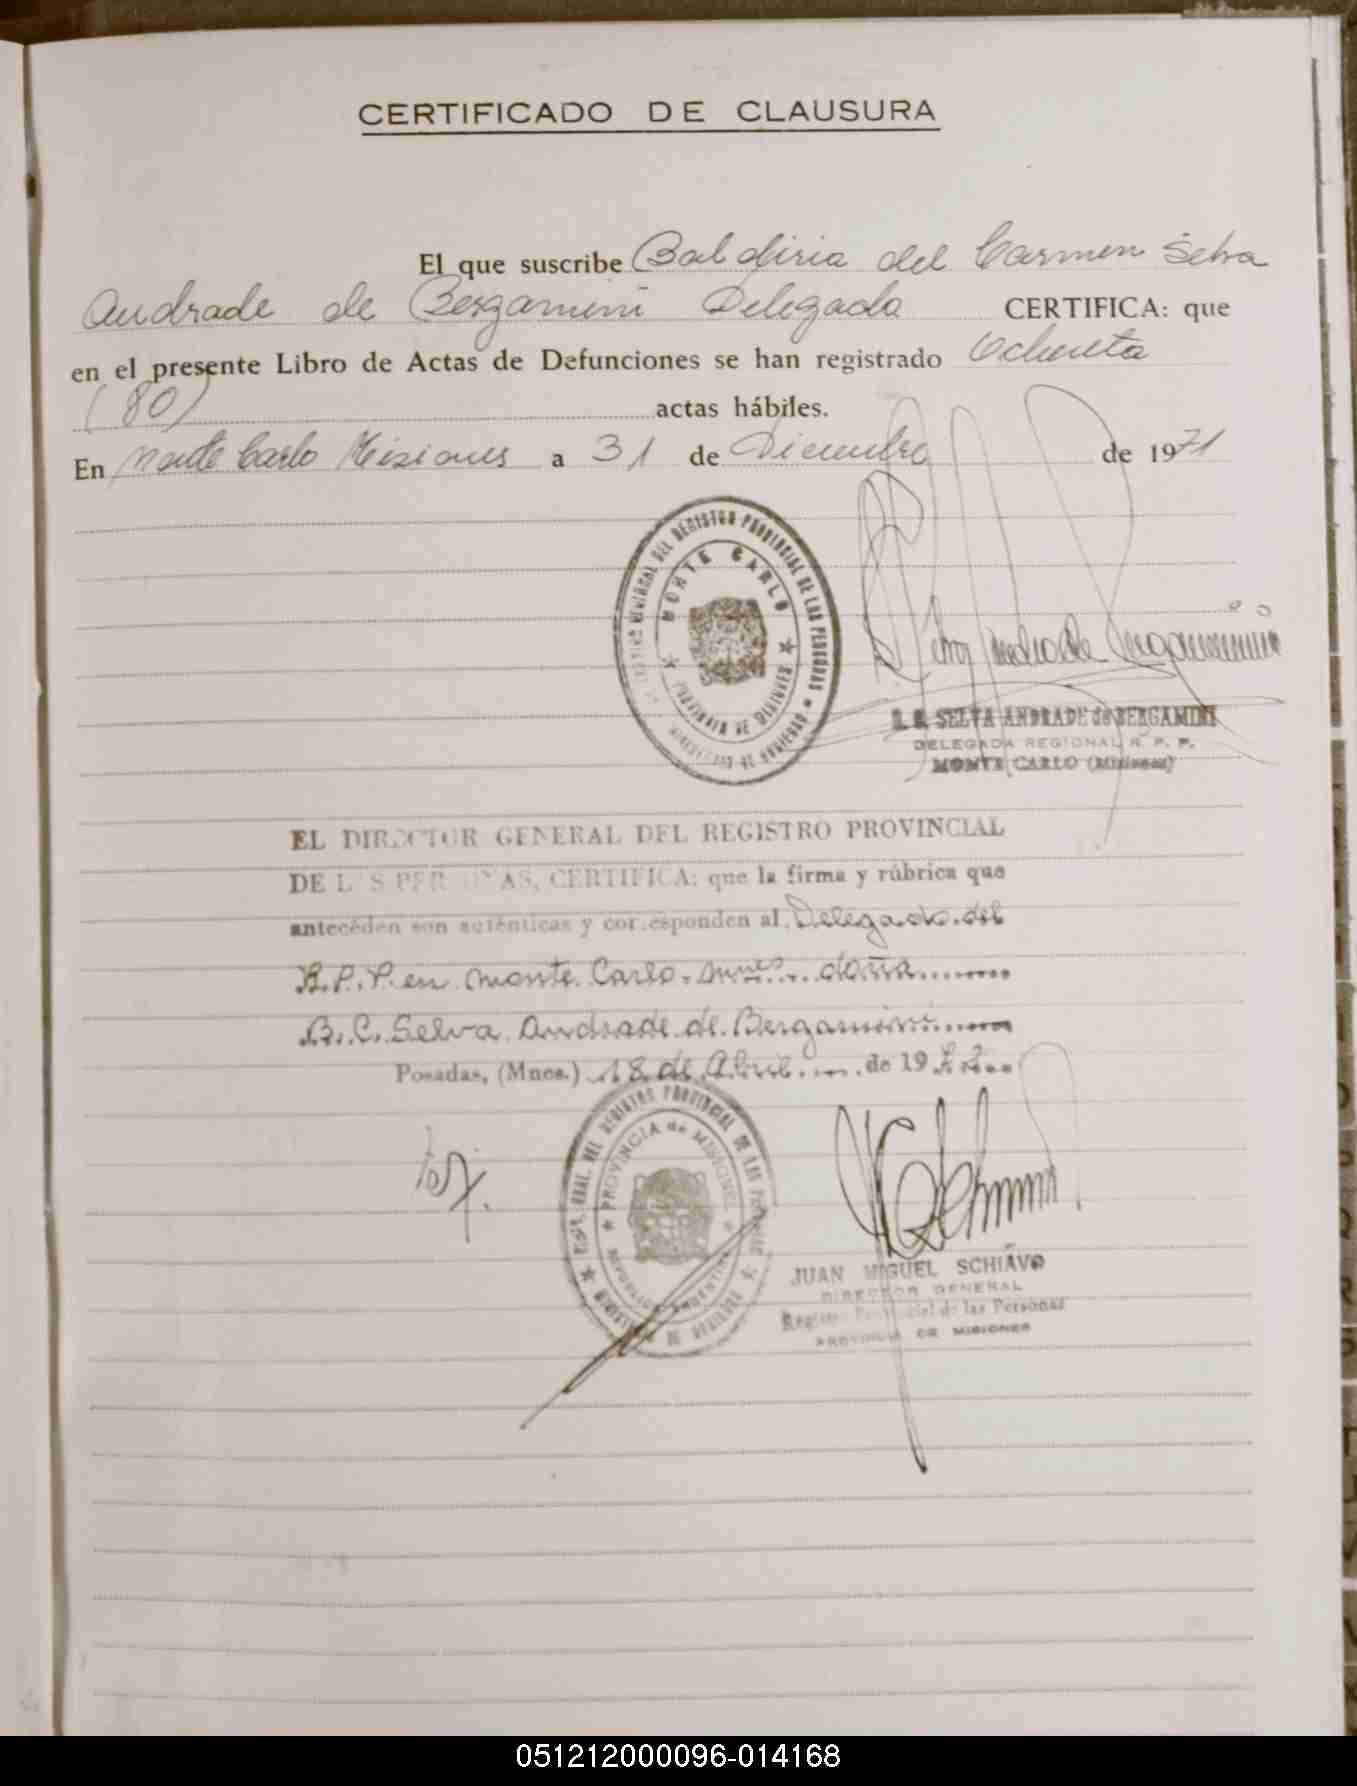 CERTIFICADO DE CLAUSURA
El que suscribe Baldiria del Carmen Selva
Andrade de Bergamini Delegada CERTIFICA: que
en el presente Libro de Actas de Defunciones se han registrado Ochenta
(80) actas hábiles.
En Monte Carlo Misiones a 31 de Diciembre de 1971
REGISTRO PROVINCIAL DE LAS PERSONAS
MONTE CARLO
PROVINCIA DE MISIONES
SELVA ANDRADE de BERGAMINI
DELEGADA REGIONAL R. P. P.
MONTE CARLO (Misiones)
EL DIRECTOR GENERAL DEL REGISTRO PROVINCIAL
DE LAS PERSONAS, CERTIFICA: que la firma y rúbrica que
anteceden son auténticas y corresponden al Delegado del
R.P.P. en Monte Carlo. Mnes. doña
B.C. Selva Andrade de Bergamini
Posadas, (Mnes.) 18 de Abril de 19
GRAL. DEL REGISTRO PROVINCIAL DE LAS PERSONAS
PROVINCIA de MISIONES
REPUBLICA ARGENTINA
JUAN MIGUEL SCHIAVO
DIRECTOR GENERAL
Registro Provincial de las Personas
PROVINCIA DE MISIONES
051212000096-014168